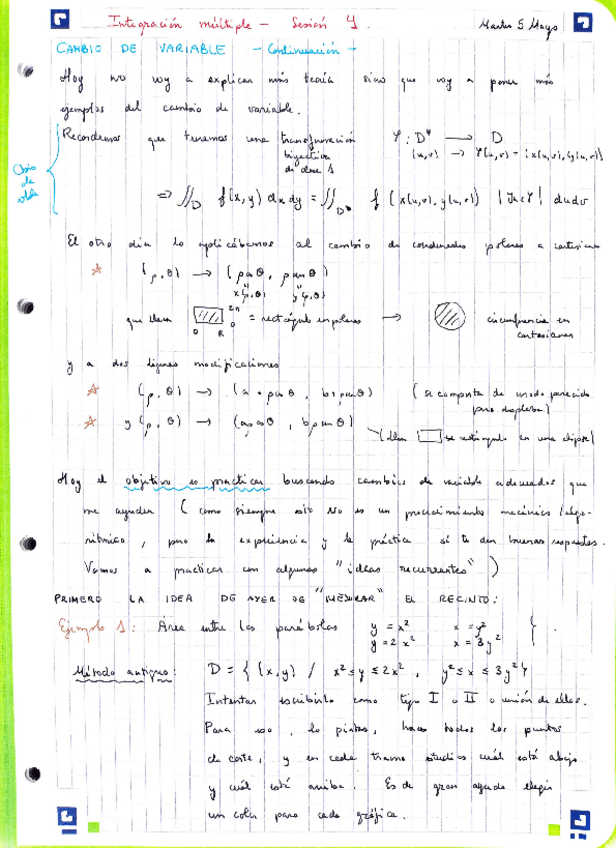 Integración múltiple - Sesión 4. Martes 5 Mayo
CAMBIO DE VARIABLE - Continuación -
Hoy no voy a explicar más teoría sino que voy a poner más
ejemplos del cambio de variable.
Recordemos que tenemos una transformación biyectiva de clase 1
φ : D* → D
(u,v) → φ(u,v) = (x(u,v), y(u,v))
⇒ ∬_D f(x,y) dx dy = ∬_D* f(x(u,v), y(u,v)) |Jac φ| du dv
El otro día lo aplicábamos al cambio de coordenadas polares a cartesianas
(ρ,θ) → (ρ cos θ, ρ sen θ)
x(ρ,θ) y(ρ,θ)
que lleva 2π 0 0 R = rectángulo en polares → circunferencia en cartesianas
y a dos ligeras modificaciones
(ρ,θ) → (a + ρ cos θ, b + ρ sen θ) (se comporta de modo parecido pero desplaza)
y (ρ,θ) → (aρ cos θ, bρ sen θ)
(lleva se rectángulo en una elipse)
Hoy el objetivo es practicar buscando cambios de variable adecuados que
me ayuden (como siempre esto NO es un procedimiento mecánico/algo-
rítmico, pero la experiencia y la práctica sí te dan buenas respuestas.
Vamos a practicar con algunas "ideas recurrentes")
PRIMERO LA IDEA DE AYER DE "MEJORAR" EL RECINTO:
Ejemplo 1: Área entre las parábolas y = x² x = y²
y = 2x² x = 3y²
Método antiguo: D = { (x,y) / x² ≤ y ≤ 2x², y² ≤ x ≤ 3y² }
Intentar escribirlo como tipo I o II o unión de ellas.
Para eso, lo pintas, haces todos los puntos
de corte, y en cada tramo estudias cuál está abajo
y cuál está arriba. Es de gran ayuda elegir
un color para cada gráfica.